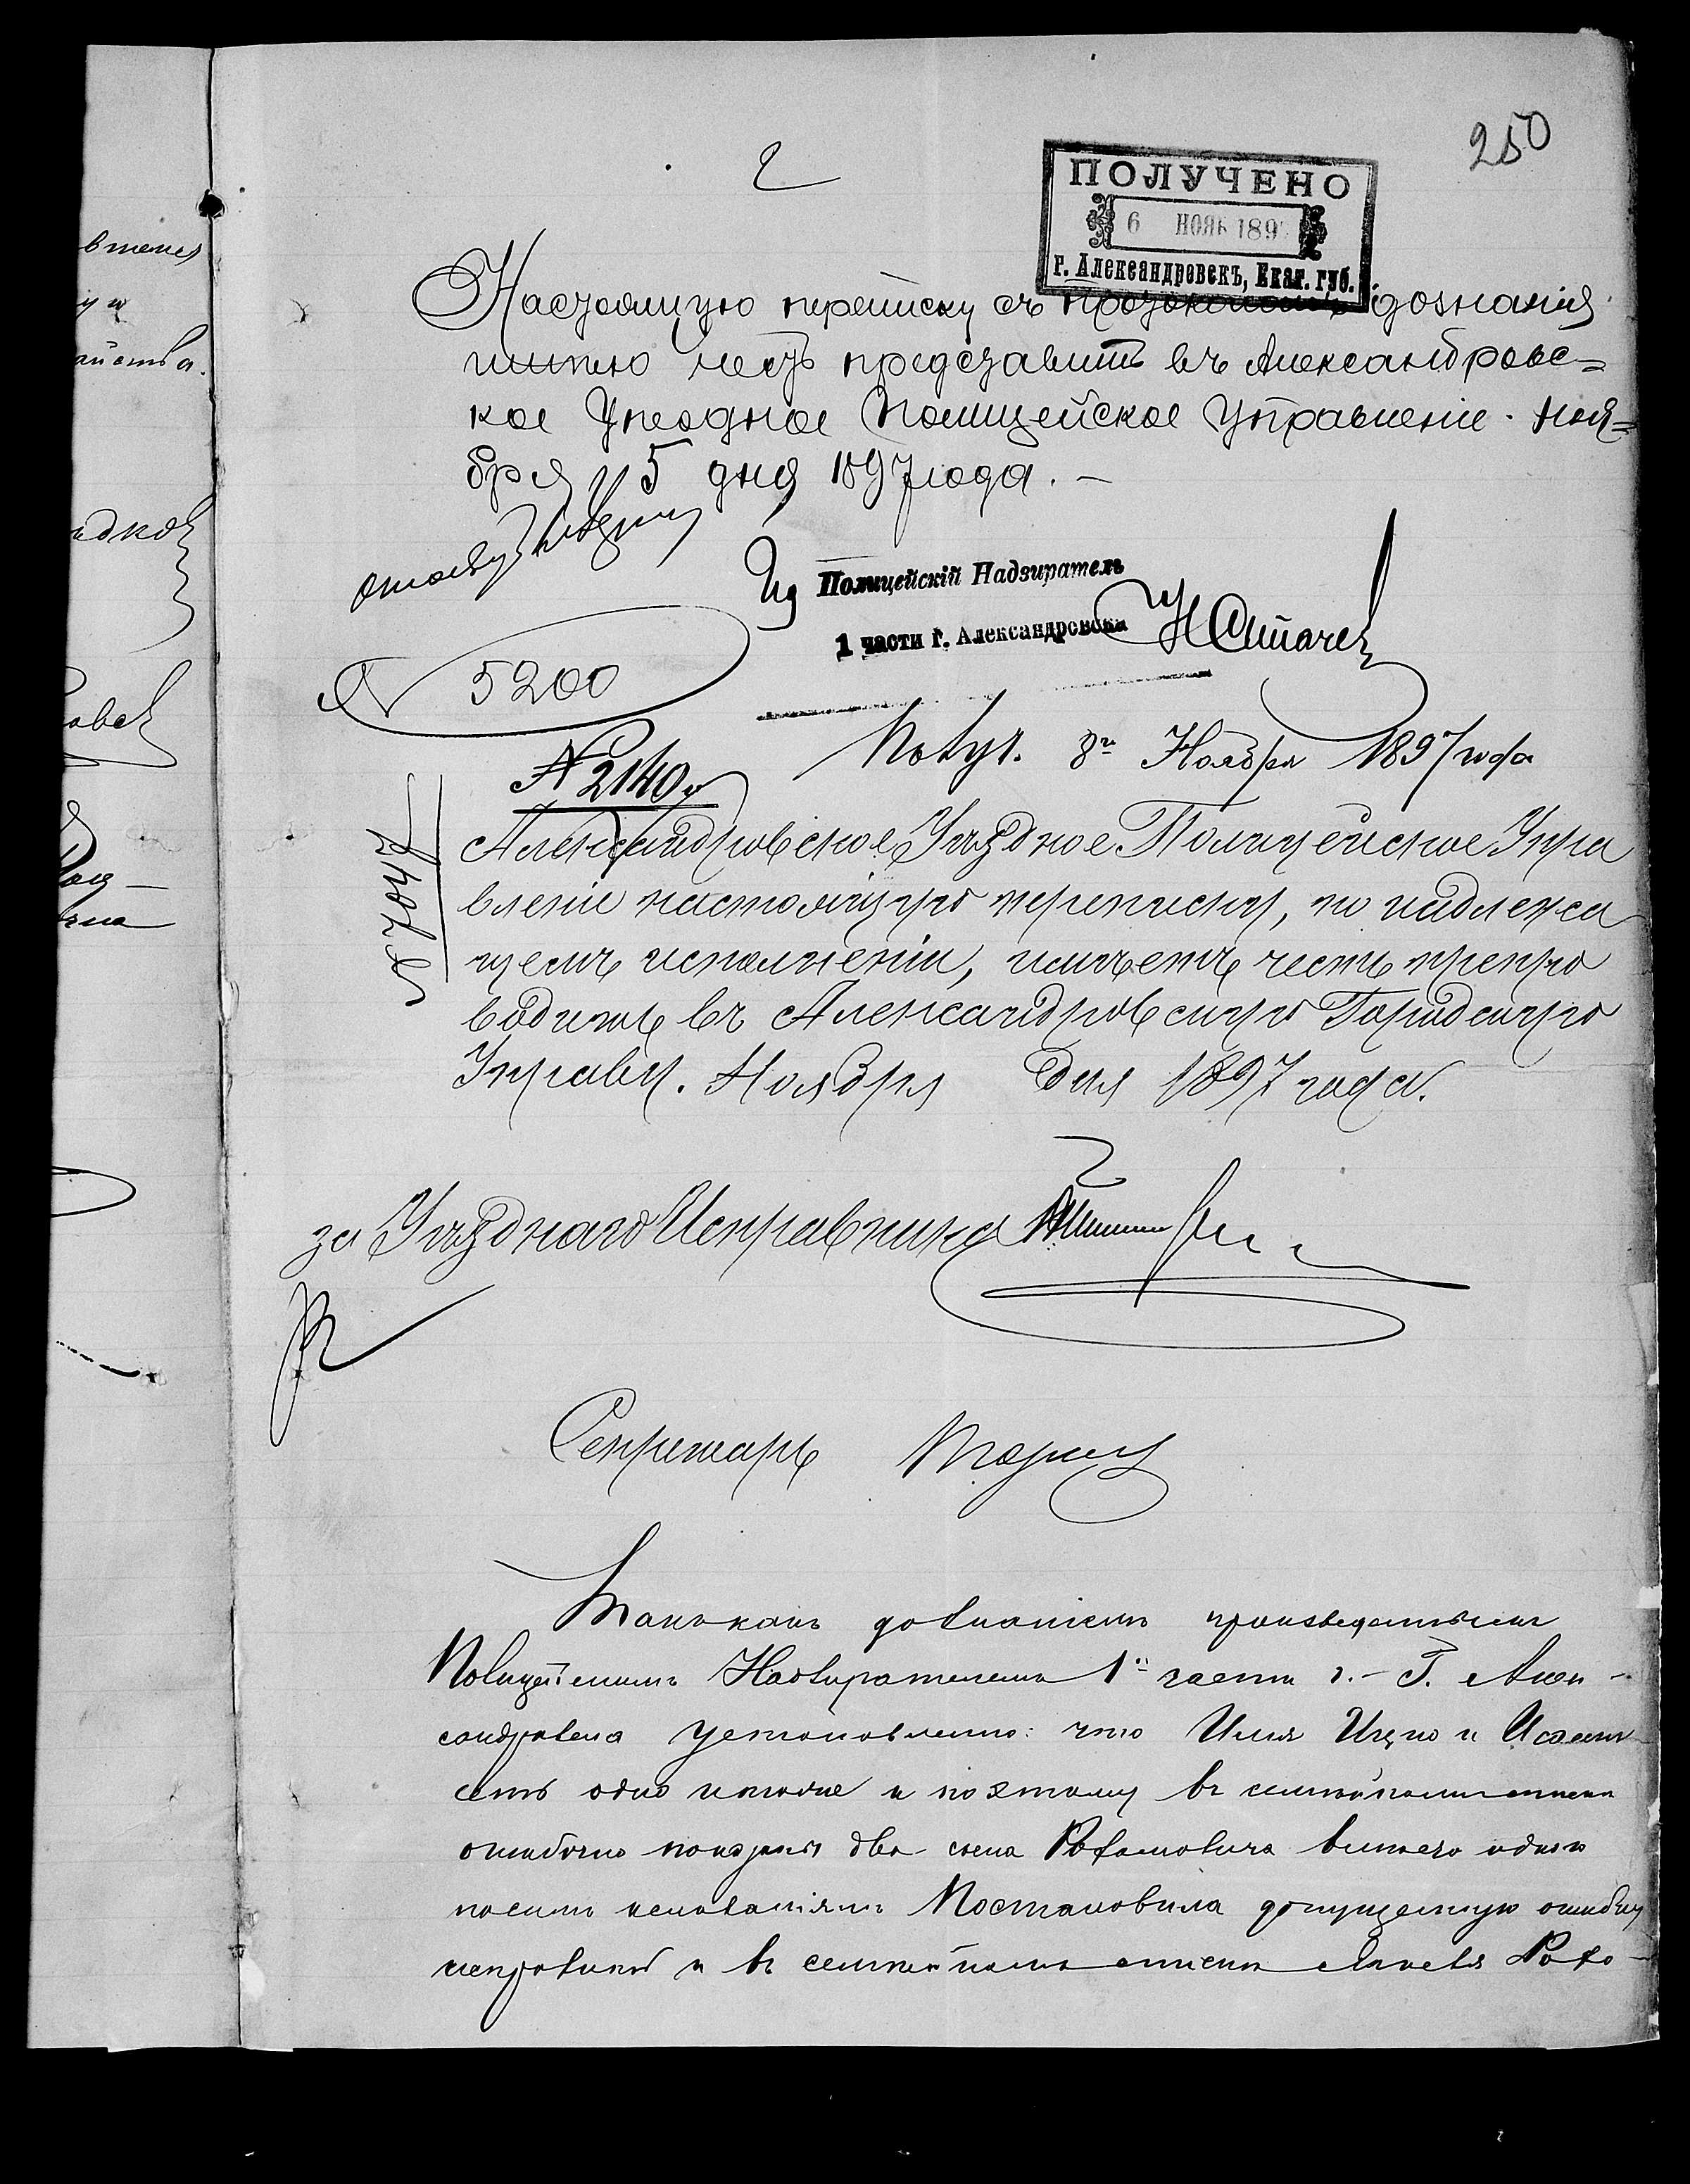 250
2
ПОЛУЧЕНО
6 НОЯБ 189
г. Александровскъ, Екат. губ.
Настоящую переписку съ протоколомъ дознанія
имѣю честь представить въ Александровс=
кое Уѣздное Полицейское Управленіе. Ноя=
бря 5 дня 1897 года. —
Ид Полицейскій Надзиратель
1 части г. Александровска
№ 5200
Получ. 8го Ноября 1897 года
№ 2140
Александровское Уѣздное Полицейское Упра
вленіе настоящую переписку, по надлежа
щемъ исполненіи, имѣетъ честь препро
водить въ Александровскую Городскую
Управу. Ноября дня 1897 года.
за Уѣзднаго Исправника
Секретарь
Такъ какъ дознаніемъ произведеннымъ
Полицейскимъ Надзирателемъ 1й части г. Алек-
сандровска установлено: что Илья Ицко и
есть одно и тоже и поэтому въ семейномъ списки
ошибочно показаны два сына вмѣсто одного
Постановила допущенную ошибку
исправить и въ семейномъ списки